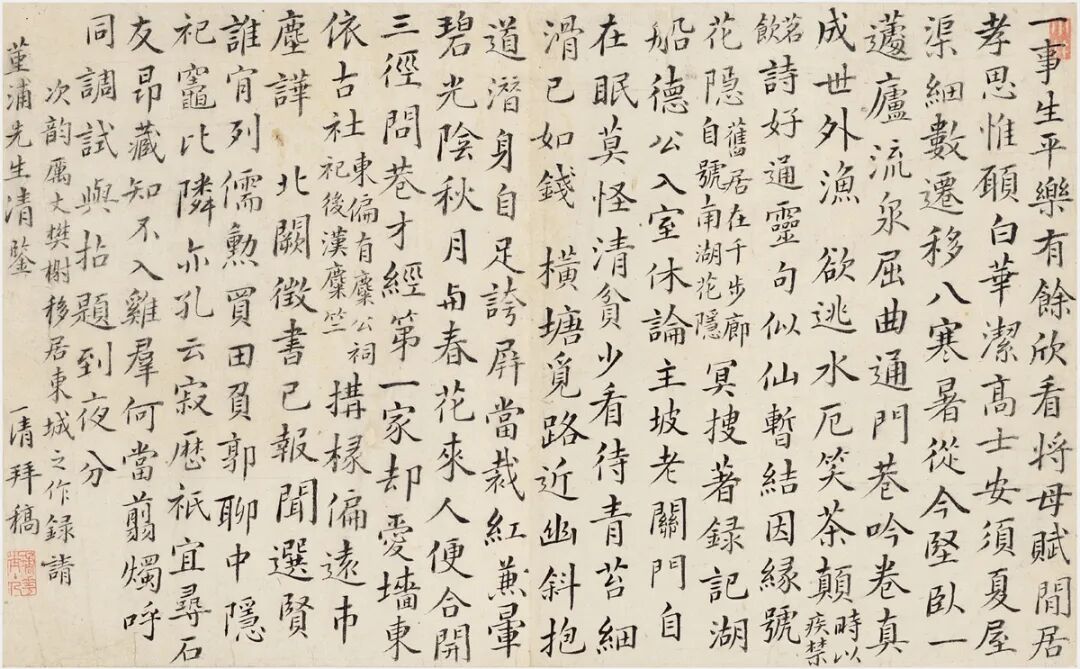 一事生平樂有餘欣看將母賦閒居
孝思惟願白華潔高士安須夏屋
渠細數遷移八寒暑從今堅臥一
蘧廬流泉屈曲通門巷吟卷真
成世外漁 欲逃水厄笑茶顛時以疾禁
茗飲詩好通靈句似仙暫結因緣號
花隱舊居在千步廊自號南湖花隱冥搜著錄記湖
船德公入室休論主坡老關門自
在眠莫怪清貧少看待青苔細
滑已如錢 橫塘覓路近幽斜抱
道潛身自足誇屏當裁紅兼暈
碧光陰秋月与春花來人便合開
三徑問巷才經第一家却愛墻東
依古社東偏有麋公祠祀後漢麋竺構椽偏遠市
塵譁 北闕徵書已報聞選賢
誰肯列儒勳買田負郭聊中隱
祀竈比隣亦孔云寂歷祇宜尋石
友昂藏知不入雞羣何當翦燭呼
同調試與拈題到夜分
次韵厲大樊榭移居東城之作錄請
堇浦先生清鑒 一清拜稿